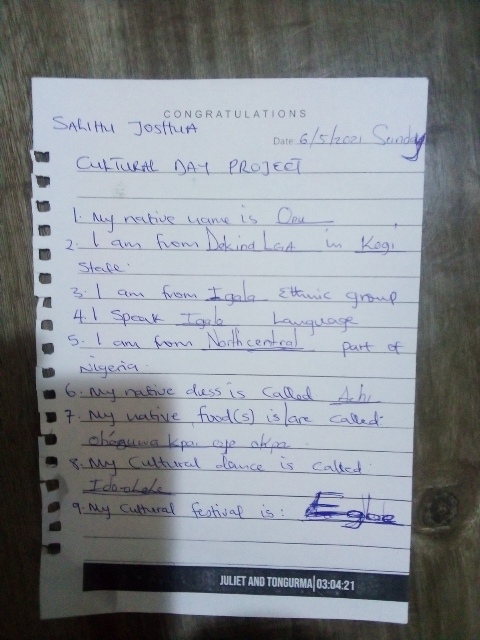 CONGRATULATIONS
SALIHU JOSHUA
Date 6/5/2021 Sunday
CULTURAL DAY PROJECT
1. My native name is
2. I am from Dekina LGA in Kogi
State.
3. I am from Igala Ethnic group
4. I Speak Igala Language
5. I am from North central part of
Nigeria.
6. My native dress is called Achi
7. My native food(s) is/are called:
kpa oje
8. My Cultural dance is called:
9. My Cultural festival is: Egbe
JULIET AND TONGURMA|03:04:21